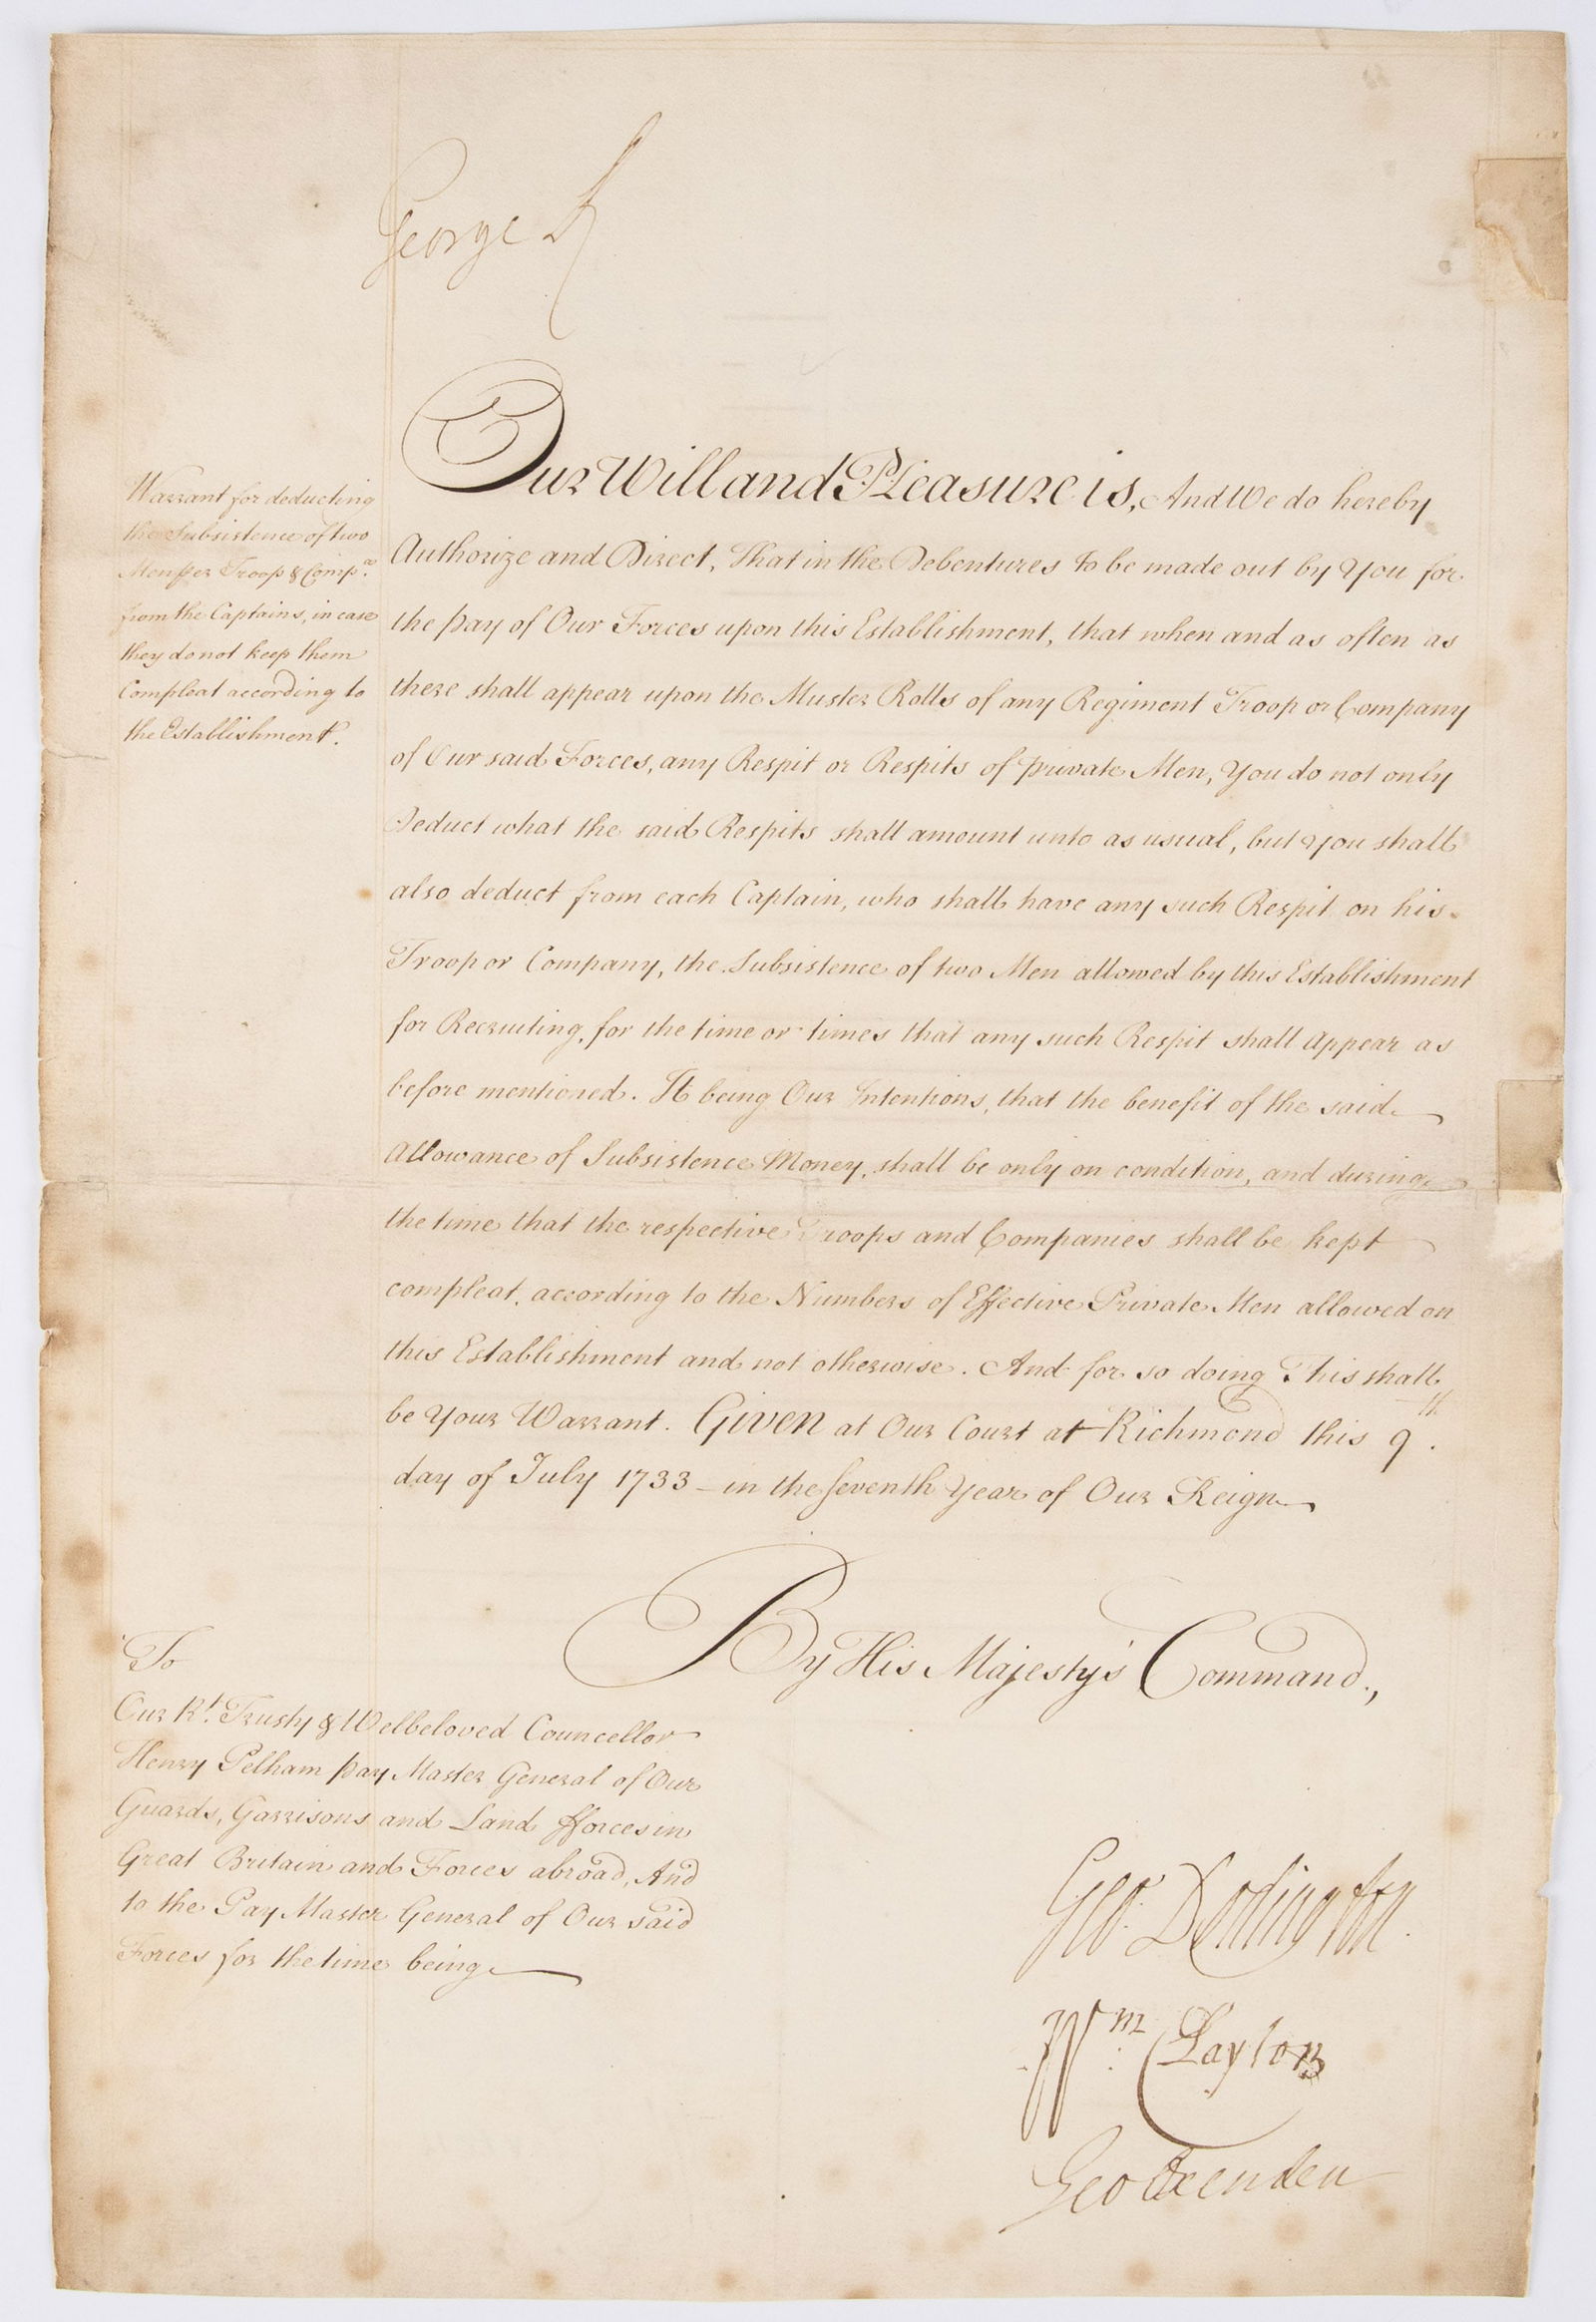 George R
Our Will and Pleasure is, And We do hereby
Authorize and Direct, That in the Debentures to be made out by You for
the pay of Our Forces upon this Establishment, that when and as often as
there shall appear upon the Muster Rolls of any Regiment Troop or Company
of Our said Forces, any Respit or Respits of private Men, You do not only
Deduct what the said Respits shall amount unto as usual, but You shall
also deduct from each Captain, who shall have any such Respit on his
Troop or Company, the Subsistence of two Men allowed by this Establishment
for Recruiting, for the time or times that any such Respit shall Appear as
before mentioned. It being Our Intentions, that the benefit of the said
Allowance of Subsistence Money, shall be only on condition, and during
the time that the respective Troops and Companies shall be kept
compleat, according to the Numbers of Effective Private Men allowed on
this Establishment and not otherwise. And for so doing This shall
be Your Warrant. Given at Our Court at Richmond this 9th.
day of July 1733 - in the Seventh Year of Our Reign
Warrant for deducting
the Subsistence of two
Men per Troop & Compa.
from the Captains, in case
they do not keep them
Compleat according to
the Establishment.
By His Majesty's Command.,
To
Our Rt. Trusty & Welbeloved Councellor
Henry Pelham pay Master General of Our
Guards, Garrisons and Land fforces in
Great Britain and Forces abroad, And
to the Pay Master General of Our said
Forces for the time being
Geo: Dodington.
Wm: Clayton
Geo Oxenden